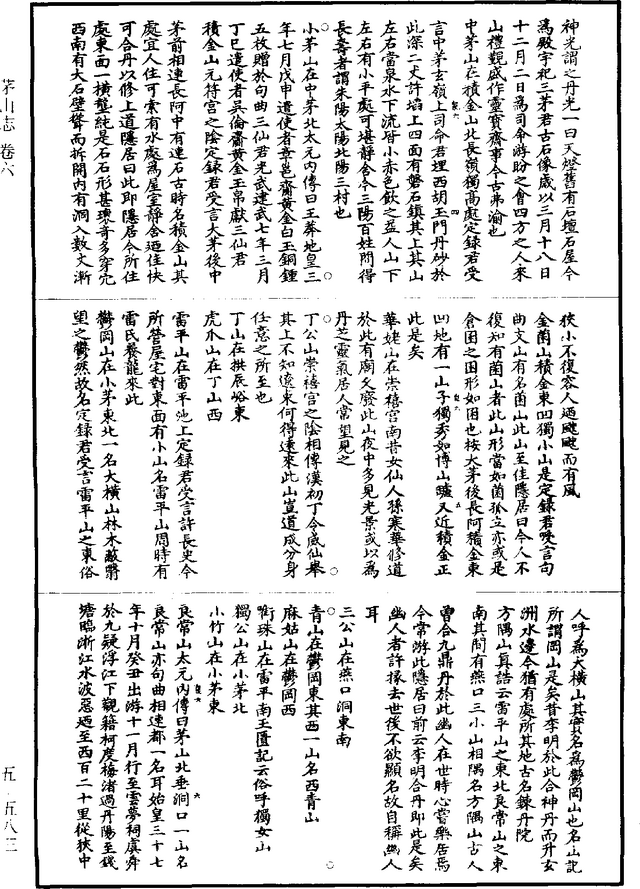 神光謂之丹光一曰天燈舊有石壇石屋今
爲殿宇祀三茅君古石像歲以三月十八日
十二月二日爲司命游盼之會四方之人來
山禮覲咸作靈寶齋事今古弗渝也
中茅山在積金山北長嶺獨高處定錄君受
言中茅玄嶺上司命君埋西胡玉門丹砂於
此深二丈許埳上四面有磐石鎮其上其山
左右當泉水下流皆小赤色飲之益人山下
左右有小平處可堪靜舍今三陽百姓問得
長壽者謂朱陽太陽北陽三村也
小茅山在中茅北太元內傳曰王莽地皇三
年七月戊申遣使者章邕齎黃金白玉銅鍾
五枚贈於句曲三仙君光武建武七年三月
丁巳遣使者吳倫齎黃金玉帛獻三仙君
積金山元符宮之陰定錄君受言大茅後中
茅前相連長阿中有連石古時名積金山其
處宜人住可索有水處爲屋室靜舍迺佳快
可合丹以修上道隱居曰此即隱居今所住
處東面一橫壟純是石石形甚瓌奇多穿穴
西南有大石壁聳而拆開內有洞入數丈漸
狹小不復容人過飂飂而有風
金菌山積金東凹獨小山是定錄君受言句
曲支山有名菌山此山至佳隱居曰今人不
復知有菌山者此山形當如菌孤立亦或是
倉囷之囷形如囷也按大茅後長阿積金東
凹地有一山子獨秀如博山罏又近積金正
此是矣
華姥山在崇禧宮南昔女仙人孫寒華修道
於此有廟久廢此山夜中多見光景或以爲
丹芝靈氣居人常望見之
丁公山崇禧宮之陰相傳漢初丁令威仙舉
其上不知遼東何得遠來此山豈道成分身
任意之所至也
丁山在拱辰峪東
虎爪山在丁山西
雷平山在雷平池上定錄君受言許長史今
所營屋宅對東面有小山名雷平山周時有
雷氏養龍來此
鬱岡山在小茅東北一名大橫山林木蔽翳
望之鬱然故名定錄君受言雷平山之東俗
人呼爲大橫山其實名爲鬱岡山也名山記
所謂岡山是矣昔李明於此合神丹而升玄
洲水邊今猶有處所其地古名鍊丹院
方隅山真誥云雷平山之東北良常山之東
南其間有燕口三小山相隅名方隅山古人
曾合九鼎丹於此幽人在世時心嘗樂居焉
今常游此隱居曰前云李明合丹即此是矣
幽人者許掾去世後不欲顯名故自稱幽人
耳
三公山在燕口洞東南
青山在鬱岡東其西一山名西青山
麻姑山在鬱岡西
衙珠山在雷平南玉匱記云俗呼獨女山
獨公山在小茅北
小竹山在小茅東
良常山太元內傳曰茅山北垂洞口一山名
良常山亦句曲相連都一名耳始皇三十七
年十月癸丑出游十一月行至雲夢祠虞舜
於九疑浮江下觀籍柯度梅渚過丹陽至錢
塘臨浙江水波惡迺至西百二十里從狹中
茅山志 卷六
五・五八三